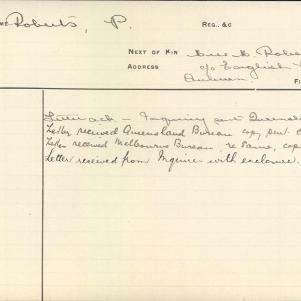 ME Roberts, P. REG. &C
NEXT OF KIN Mrs M. Robe
ADDRESS c/o English
FI
Inquiry sent Queensla
Letter received Queensland Bureau copy sent
Letter received Melbourne Bureau re same, cop
Letter received from Inquirer with enclosure.